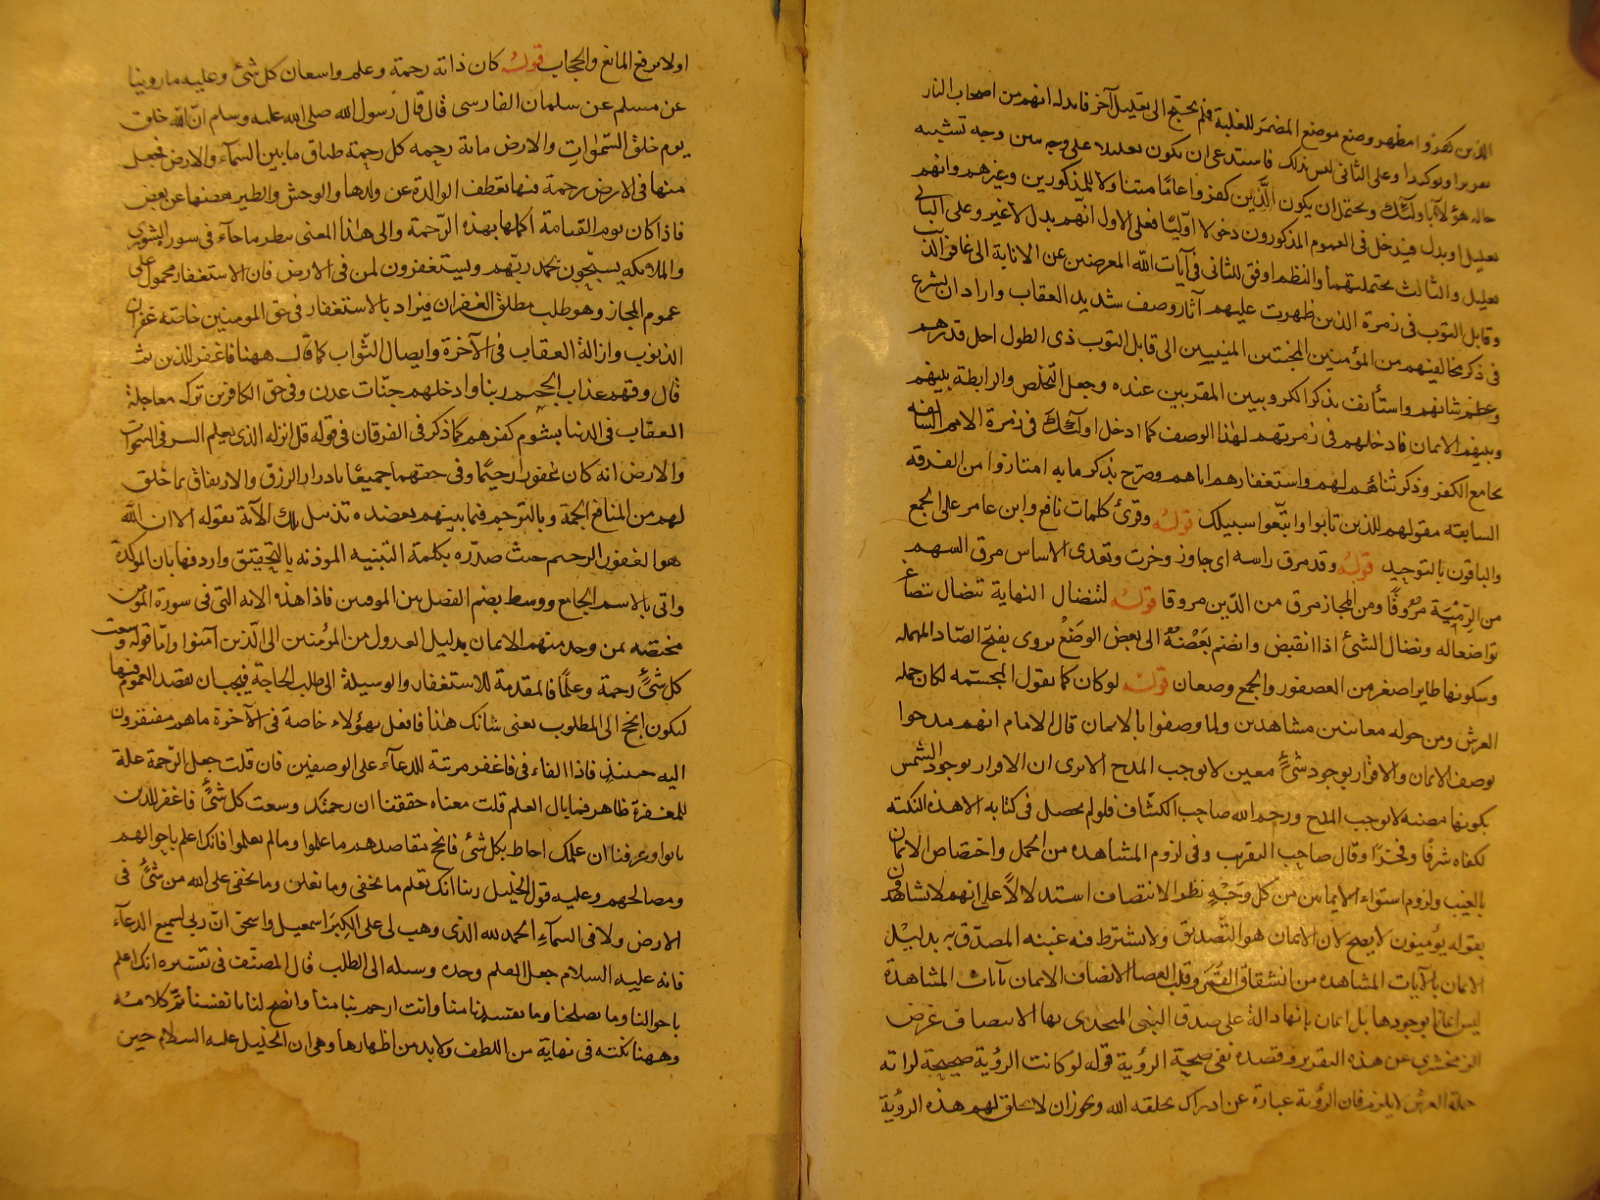 الذين كفروا مظهر وضع موضع المضمر للغلبة فلم يحتج الى تعليل آخر فابدله انهم من اصحاب النار
تقريرا وتوكيدا وعلى الثانى ليس بذلك فاستدعى ان يكون تعليلا على وجه مبين وجه تشبيه
حاله هؤلاء باولئك ويحتمل ان يكون الذين كفروا عاما متناولا للمذكورين وغيرهم وانهم
تعليل او بدل فيدخل فى العموم المذكورون دخولا اوليا فعلى الاول انهم بدل لا غير وعلى الثانى
تعليل والثالث يحتملهما والنظم اوفق للثانى فى آيات الله المعرضين عن الانابة الى غافر الذنب
وقابل التوب فى زمرة الذين ظهرت عليهم آثار وصف شديد العقاب واراد ان يشرع
فى ذكر مخالفيهم من المؤمنين المخبتين المنيبين الى قابل التوب ذى الطول اجل قدرهم
وعظم شانهم واستأنف بذكر الكروبيين المقربين عنده وجعل التخلص والرابطة بينهم
وبينهم الايمان فادخلهم فى زمرتهم لهذا الوصف كما ادخل اولئك فى زمرة الامم السالفه
بجامع الكفر وذكر ثنائهم لهم واستغفارهم اياهم وصرح بذكر ما به امتازوا من الفرقة
السابقة مقولهم للذين تابوا واتبعوا سبيلك قوله وقرئ كلمات نافع وابن عامر على الجمع
والباقون بالتوحيد قوله وقد مرق راسه اى جاوز وخرت وتعدى الاساس مرق السهم
من الرمية مروقا ومن المجاز مرق من الدين مروقا قوله لتتضال النهاية تتضال تتصاغر
تواضعا له وتضال الشئ اذا انقبض وانضم بعضه الى بعض الوضع يروى بفتح الصاد المهمله
وسكونها طاير اصغر من العصفور والجمع وصعان قوله لو كان كما تقول المجسمه لكان حمله
العرش ومن حوله معاينين مشاهدين ولما وصفوا بالايمان قال الامام انهم مدحوا
بوصف الايمان والاقرار بوجود شئ معين لا يوجب المدح الا ترى ان الاقرار بوجود الشمس
بكونها مضيئه لا يوجب المدح ورحم الله صاحب الكشاف فلو لم يحصل فى كتابه الا هذه النكته
لكفاه شرفا وفخرا وقال صاحب التقريب وفى لزوم المشاهده من الحمل واختصاص الايمان
بالغيب ولزوم استواء الايمانين من كل وجه نظر الانتصاف استدلالا على انهم لا يشاهدون
بقوله يؤمنون لا يصح لان الايمان هو التصديق ولا يشترط فيه غيبته المصدق به بدليل
الايمان بالآيات المشاهده من انشقاق القمر وقلب العصا الانصاف الايمان بآيات المشاهدة
ليس ايمانا بوجودها بل ايمان بانها دالة على صدق النبى المتحدى بها الانتصاف غرض
الزمخشرى عن هذه التقرير وقصده نفى صحة الرؤية قوله لو كانت الرؤية صحيحة لراته
حملة العرش لا يلزم فان الرؤية عبارة عن ادراك يخلقه الله ويجوز ان لا يخلق لهم هذه الرؤية
اولا برفع المانع والحجاب قوله كان ذاته رحمة وعلم واسعان كل شئ وعليه ما روينا
عن مسلم عن سلمان الفارسى قال قال رسول الله صلى الله عليه وسلم ان الله خلق
يوم خلق السموات والارض مائة رحمه كل رحمة طباق ما بين السمآء والارض فجعل
منها فى الارض رحمة فبها تعطف الوالدة عن ولدها والوحش والطير بعضها عن بعض
فاذا كان يوم القيامة اكملها بهذه الرحمة والى هذا المعنى ينظر ما جآء فى سورة الشورى
والملائكه يسبحون بحمد ربهم ويستغفرون لمن فى الارض فان الاستغفار محمول على
عموم المجاز وهو طلب مطلق الغفران فيراد بالاستغفار فى حق المومنين خاصته غفران
الذنوب وازالة العقاب فى الآخرة وايصال الثواب كما قال ههنا فاغفر للذين تابوا ثم
قال وقهم عذاب الجحيم ربنا وادخلهم جنات عدن وفى حق الكافرين تركه معاجلة
العقاب فى الدنيا بشوم كفرهم كما ذكر فى الفرقان فى قوله قل انزله الذى يعلم السر فى السموات
والارض انه كان غفورا رحيما وفى حقهما جميعا بادرار الرزق والارتفاق بما خلق
لهم من المنافع الجمة وبالترحيم فيما بينهم بعضده تذييل تلك الآية بقوله الا ان الله
هو الغفور الرحيم حيث صدره بكلمة التنبيه الموذنه بالتحقيق واردفها بان الموكدة
واتى بالاسم الجامع ووسط بضم الفصل بين الموصين فاذا هذه الايه التى فى سورة المومن
مختصه بمن وجد منهم الايمان بدليل العدول من المؤمنين الى الذين آمنوا واما قوله وسعت
كل شئ رحمة وعلما فالمقدمة للاستغفار والوسيلة الى طلب الحاجة فيجب ان يقصد العموم فيها
ليكون انجح الى المطلوب يعنى شانك هذا فافعل بهؤلاء خاصة فى الآخرة ما هم مفتقرون
اليه حينئذ فاذا الفاء فى فاغفر مرتبة للدعآء على الوصفين فان قلت جعل الرحمة علة
للمغفرة ظاهر فما بال العلم قلت معناه حققنا ان رحمتك وسعت كل شئ فاغفر للذين
تابوا وعرفنا ان علمك احاط بكل شئ فانجح مقاصدهم ما علموا وما لم يعلموا فانك اعلم باحوالهم
ومصالحهم وعليه قول الخليل ربنا انك تعلم ما نخفى وما نعلن وما يخفى على الله من شئ فى
الارض ولا فى السمآء الحمد لله الذى وهب لى على الكبر اسمعيل واسحق ان ربى لسميع الدعآء
فانه عليه السلام جعل العلم وحده وسيله الى الطلب قال المصنف فى تفسيره انك اعلم
باحوالنا وما يصلحنا وما يفسدنا منا وانت ارحم بنا منا وانصح لنا بانفسنا ثم كلامه
وههنا نكته فى نهاية من اللطف ولا بد من اظهارها وهى ان الخليل عليه السلام حين